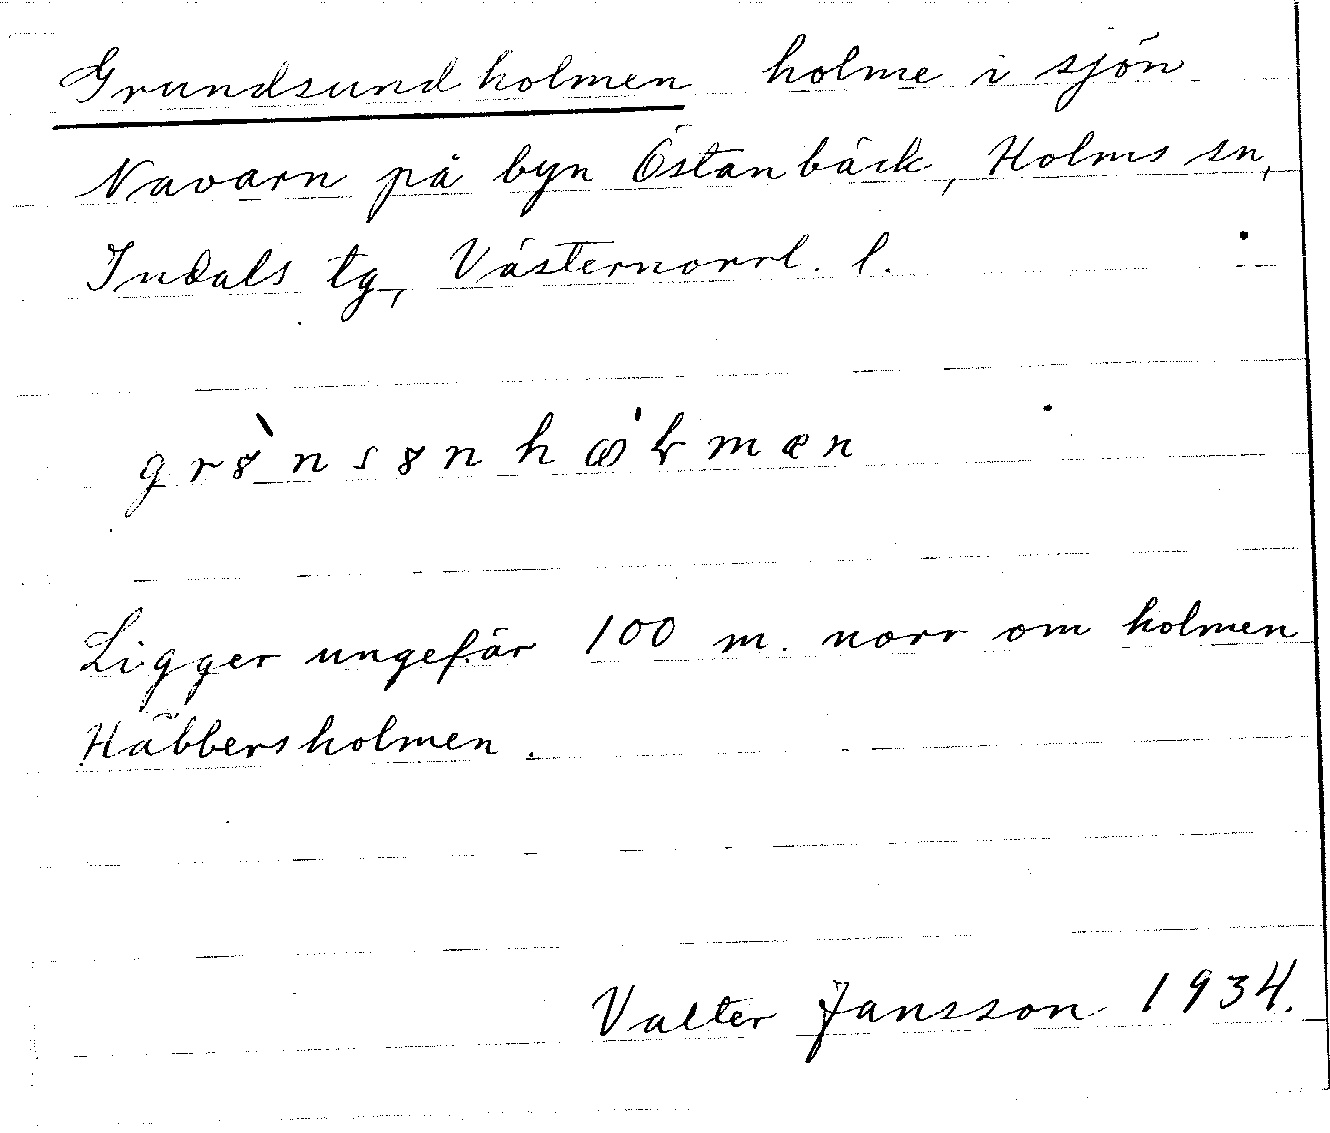 Grundsundholmen holme i sjön
Navarn på byn Östanbäck, Holms sn,
Indals tg, Västernorrl. l.
Ligger ungefär 100 m. norr om holmen
Häbbersholmen.
Valter Jansson 1934.